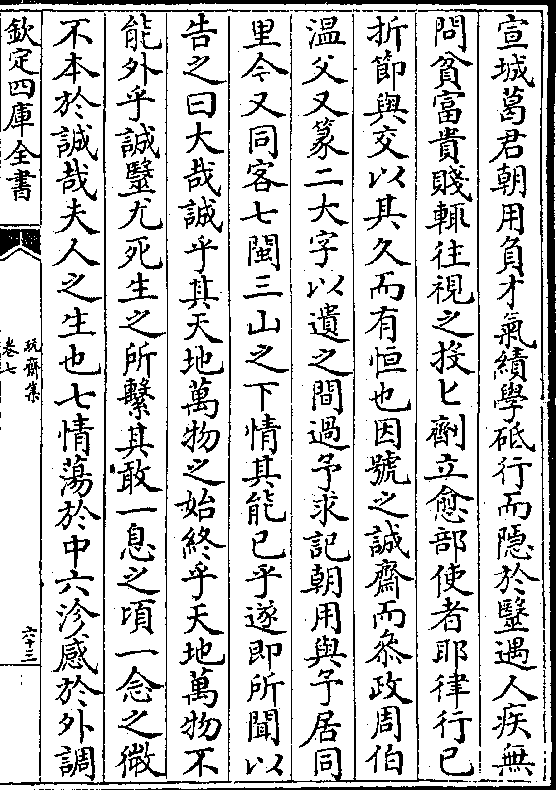 宣城葛君朝用負才氣績學砥行而隱於毉遇人疾無
問貧富貴賤輒往視之投匕劑立愈部使者耶律行已
折節與交以其久而有恒也因號之誠齋而叅政周伯
温父又篆二大字以遺之間過予求記朝用與予居同
里今又同客七閩三山之下情其能已乎遂即所聞以
告之曰大哉誠乎其天地萬物之始終乎天地萬物不
能外乎誠毉尤死生之所繫其敢一息之頃一念之微
不本於誠哉夫人之生也七情蕩於中六沴感於外調
欽定四庫全書
玩齋集
卷七
六十三